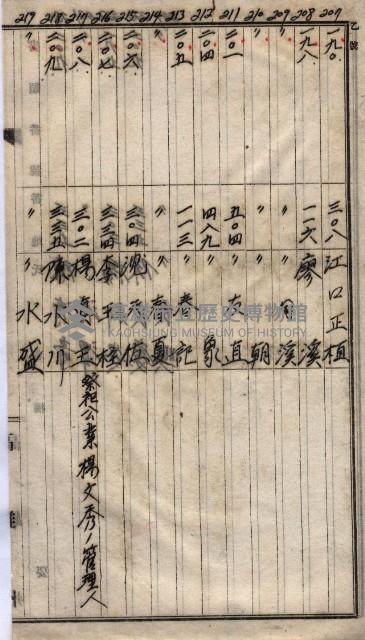 乙號
207 一九〇 三〇八 江口正植
208 一九八 一一六 廖溪
209 〃 〃 溪
210 〃 〃 朝
211 二〇一 五〇四 直
212 二〇四 四八九 〃 象
213 二〇五 一一三 〃 春記
214 〃 〃 春夏
215 二〇六 三〇四
216 二〇七 三三四 李 桂
217 二〇八 三〇二 楊 王 祭祀公業楊文秀ノ管理人
218 二〇九 三三五 陳水川
219 〃 〃 水盛
高雄市立歷史博物館
KAOHSIUNG MUSEUM OF HISTORY